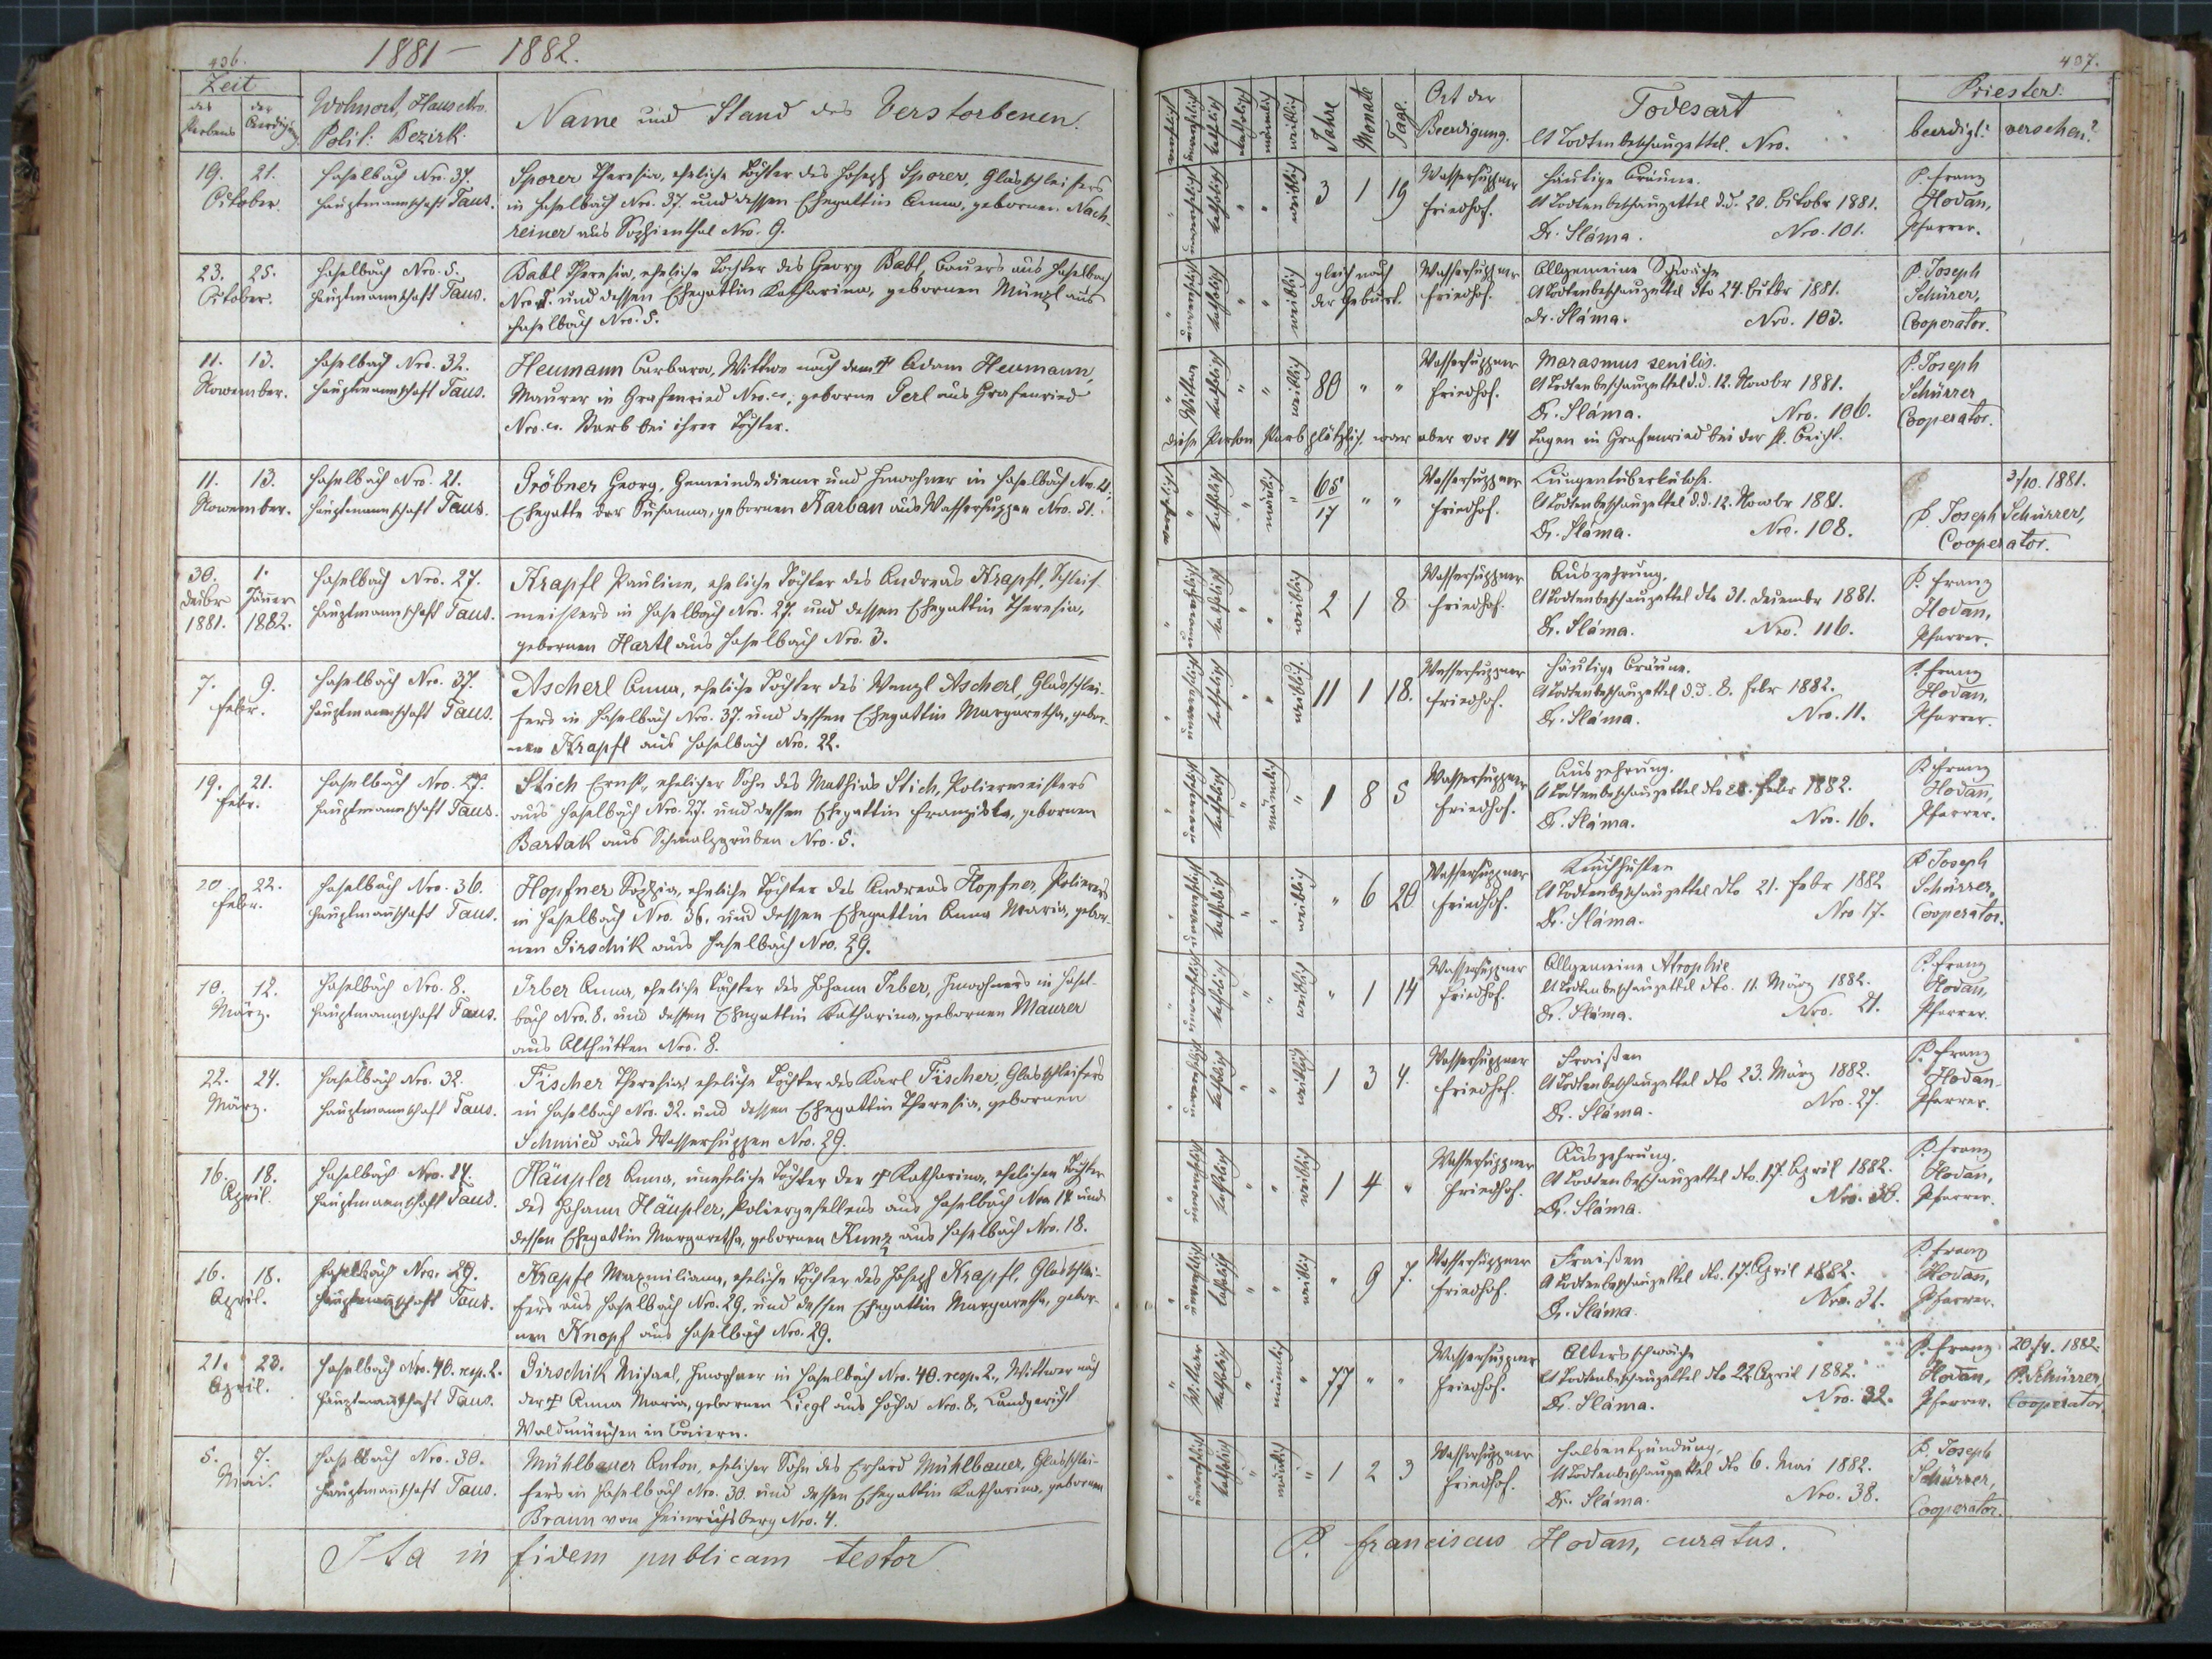 436.
1881 – 1882.
Zeit
des Sterbens
der Beerdigung
Wohnort, Haus Nro.
Polit: Bezirk
Name und Stand des Verstorbenen.
19. 21.
October
Haselbach Nro. 37.
Hauptmannschaft Taus.
Sporer Theresia, eheliche Tochter des Joseph Sporer, Glasschleifers
in Haselbach Nro. 37. und dessen Ehegattin Anna, gebornen Nach-
reiner aus Sophienthal Nro. 9.
23. 25.
October.
Haselbach Nro. 5.
Hauptmannschaft Taus.
Babl Theresia, eheliche Tochter des Georg Babl, Bauers aus Haselbach
Nro. 5. und dessen Ehegattin Katharina, gebornen Münzl aus
Haselbach Nro. 5.
11. 13.
November.
Haselbach Nro. 32.
Hauptmannschaft Taus.
Heumann Barbara, Wittwe nach dem † Adam Heumann,
Maurer in Grafenried Nro. , geborne Gerl aus Grafenried
Nro. Starb bei ihrer Tochter.
11. 13.
November.
Haselbach Nro. 21.
Hauptmannschaft Taus.
Gröbner Georg, Gemeindediener und Inwohner in Haselbach Nro. 21.
Ehegatte der Susanna, gebornen Karban aus Wassersuppen Nro. 51.
30. 1.
Decbr Jäner
1881. 1882.
Haselbach Nro. 27.
Hauptmannschaft Taus.
Krapfl Pauline, eheliche Tochter des Andreas Krapfl, Schleif-
meisters in Haselbach Nro. 27. und dessen Ehegattin Theresia,
gebornen Hartl aus Haselbach Nro. 3.
7. 9.
Febr.
Haselbach Nro. 37.
Hauptmannschaft Taus.
Ascherl Anna, eheliche Tochter des Wenzl Ascherl, Glasschlei-
fers in Haselbach Nro. 37. und dessen Ehegattin Margaretha, gebor-
nen Krapfl aus Haselbach Nro. 22.
19. 21.
Febr.
Haselbach Nro. 27.
Hauptmannschaft Taus.
Stich Ernst, ehelicher Sohn des Mathias Stich, Poliermeisters
aus Haselbach Nro. 27. und dessen Ehegattin Franziska, gebornen
Bartak aus Schmalzgruben Nro. 5.
20. 22.
Febr.
Haselbach Nro. 36.
Hauptmannschaft Taus.
Hopfner Sophia, eheliche Tochter des Andreas Hopfner, Polierers
in Haselbach Nro. 36. und dessen Ehegattin Anna Maria, gebor-
nen Girschik aus Haselbach Nro. 29.
10. 12.
März.
Haselbach Nro. 8.
Hauptmannschaft Taus.
Irber Anna, eheliche Tochter des Johann Irber, Inwohners in Hasel-
bach Nro. 8. und dessen Ehegattin Katharina, gebornen Maurer
aus Althütten Nro. 8.
22. 24.
März.
Haselbach Nro. 32.
Hauptmannschaft Taus.
Fischer Theresia, eheliche Tochter des Karl Fischer, Glasschleifers
in Haselbach Nro. 32. und dessen Ehegattin Theresia, gebornen
Schmied aus Wassersuppen Nro. 29.
16. 18.
April.
Haselbach Nro. 14.
Hauptmannschaft Taus.
Häupler Anna, uneheliche Tochter der † Katharina, ehelichen Tochter
des Johann Häupler, Poliergesellens aus Haselbach Nro. 14 und
dessen Ehegattin Margaretha, gebornen Kunz aus Haselbach Nro. 18.
16. 18.
April.
Haselbach Nro. 29.
Hauptmannschaft Taus.
Krapfl Maxmiliana, eheliche Tochter des Joseph Krapfl, Glasschlei-
fers aus Haselbach Nro. 29. und dessen Ehegattin Margaretha, gebor-
nen Knopf aus Haselbach Nro. 29.
21. 23.
April.
Haselbach Nro. 40. resp. 2.
Hauptmannschaft Taus.
Girschik Michael, Inwohner in Haselbach Nro. 40. resp. 2., Wittwer nach
der † Anna Maria, gebornen Liegl aus Höcha Nro. 8, Landgericht
Waldmünchen in Baiern.
5. 7.
Mai.
Haselbach Nro. 30.
Hauptmannschaft Taus.
Mühlbauer Anton, ehelicher Sohn des Erhard Mühlbauer, Glasschlei-
fers in Haselbach Nro. 30. und dessen Ehegattin Katharina, gebornen
Braun von Heinrichsberg Nro. 4.
Ita in fidem publicam testor
437.
verehelicht
unverehelicht
katholisch
männlich
weiblich
Jahre
Monate
Tage.
Ort der
Beerdigung.
Todesart
lt Todtenbeschauzettel. Nro.
Priester:
beerdigt:
versehen?
" unverehelicht katholisch " " weiblich 3 1 19
Wassersuppner
Friedhof.
Häutige Bräune.
lt Todtenbeschauzettel d.d. 20. Octobr 1881.
Dr. Sláma. Nro. 101.
P. Franz
Hodan,
Pfarrer.
" unverehelicht katholisch " " weiblich
gleich nach
der Geburt.
Wassersuppner
Friedhof.
Allgemeine Schwäche
lt Todtenbeschauzettel dto 24. Octbr 1881.
Dr. Sláma. Nro. 103.
P. Joseph
Schürer,
Cooperator.
" Wittwe katholisch " " weiblich 80 " "
Wassersuppner
Friedhof.
Marasmus senilis.
lt Todtenbeschauzettel d.d. 12. Novbr 1881.
Dr. Sláma. Nro. 106.
P. Joseph
Schürrer
Cooperator.
Diese Person starb plötzlich, war aber vor 14 Tagen in Grafenried bei der hl. Beicht.
verehelicht " katholisch " männlich " 65/17 " "
Wassersuppner
Friedhof.
Lungentuberkulose.
lt Todtenbeschauzettel d.d. 12. Novbr 1881.
Dr. Sláma. Nro. 108.
3/10. 1881.
P. Joseph Schürrer,
Cooperator.
" unverehelicht katholisch " " weiblich 2 1 8
Wassersuppner
Friedhof.
Auszehrung.
lt Todtenbeschauzettel dto 31. Decembr 1881.
Dr. Sláma. Nro. 116.
P. Franz
Hodan,
Pfarrer.
" unverehelicht katholisch " " weiblich 11 1 18.
Wassersuppner
Friedhof.
Häutige Bräune.
lt Todtenbeschauzettel d.d. 8. Febr 1882.
Dr. Sláma. Nro. 11.
P. Franz
Hodan,
Pfarrer.
" unverehelicht katholisch " männlich " 1 8 5
Wassersuppner
Friedhof.
Auszehrung.
lt Todtenbeschauzettel dto Febr 1882.
Dr. Sláma. Nro. 16.
P. Franz
Hodan,
Pfarrer.
" unverehelicht katholisch " " weiblich " 6 20
Wassersuppner
Friedhof.
Keuchhusten
lt Todtenbeschauzettel dto 21. Febr 1882
Dr. Sláma. Nro 17.
P. Joseph
Schürrer,
Cooperator.
" unverehelicht katholisch " " weiblich " 1 14
Wassersuppner
Friedhof.
Allgemeine Atrophie
lt Todtenbeschauzettel dto. 11. März 1882.
Dr. Sláma. Nro. 21.
P. Franz
Hodan,
Pfarrer.
" unverehelicht katholisch " " weiblich 1 3 4.
Wassersuppner
Friedhof.
Fraißen
lt Todtenbeschauzettel dto 23. März 1882.
Dr. Sláma. Nro. 27.
P. Franz
Hodan.
Pfarrer.
" unverehelicht katholisch " " weiblich 1 4 "
Wassersuppner
Friedhof.
Auszehrung.
lt Todtenbeschauzettel dto. 17. April 1882.
Dr. Sláma. Nro. 30.
P. Franz
Hodan,
Pfarrer.
" unverehelicht katholisch " " weiblich " 9 7.
Wassersuppner
Friedhof.
Fraißen
lt Todtenbeschauzettel dto. 17. April 1882.
Dr. Sláma. Nro. 31.
P. Franz
Hodan,
Pfarrer.
" Wittwer katholisch " männlich " 77 " "
Wassersuppner
Friedhof.
Altersschwäche
lt Todtenbeschauzettel dto 22 April 1882.
Dr. Sláma. Nro. 32.
P. Franz
Hodan,
Pfarrer.
20./4. 1882.
P. Schürrer,
Cooperator.
" unverehelicht katholisch " männlich " 1 2 3
Wassersuppner
Friedhof.
Halsentzündung,
lt Todtenbeschauzettel dto 6. Mai 1882.
Dr. Sláma. Nro. 38.
P. Joseph
Schürrer,
Cooperator.
P. Franciscus Hodan, curatus.